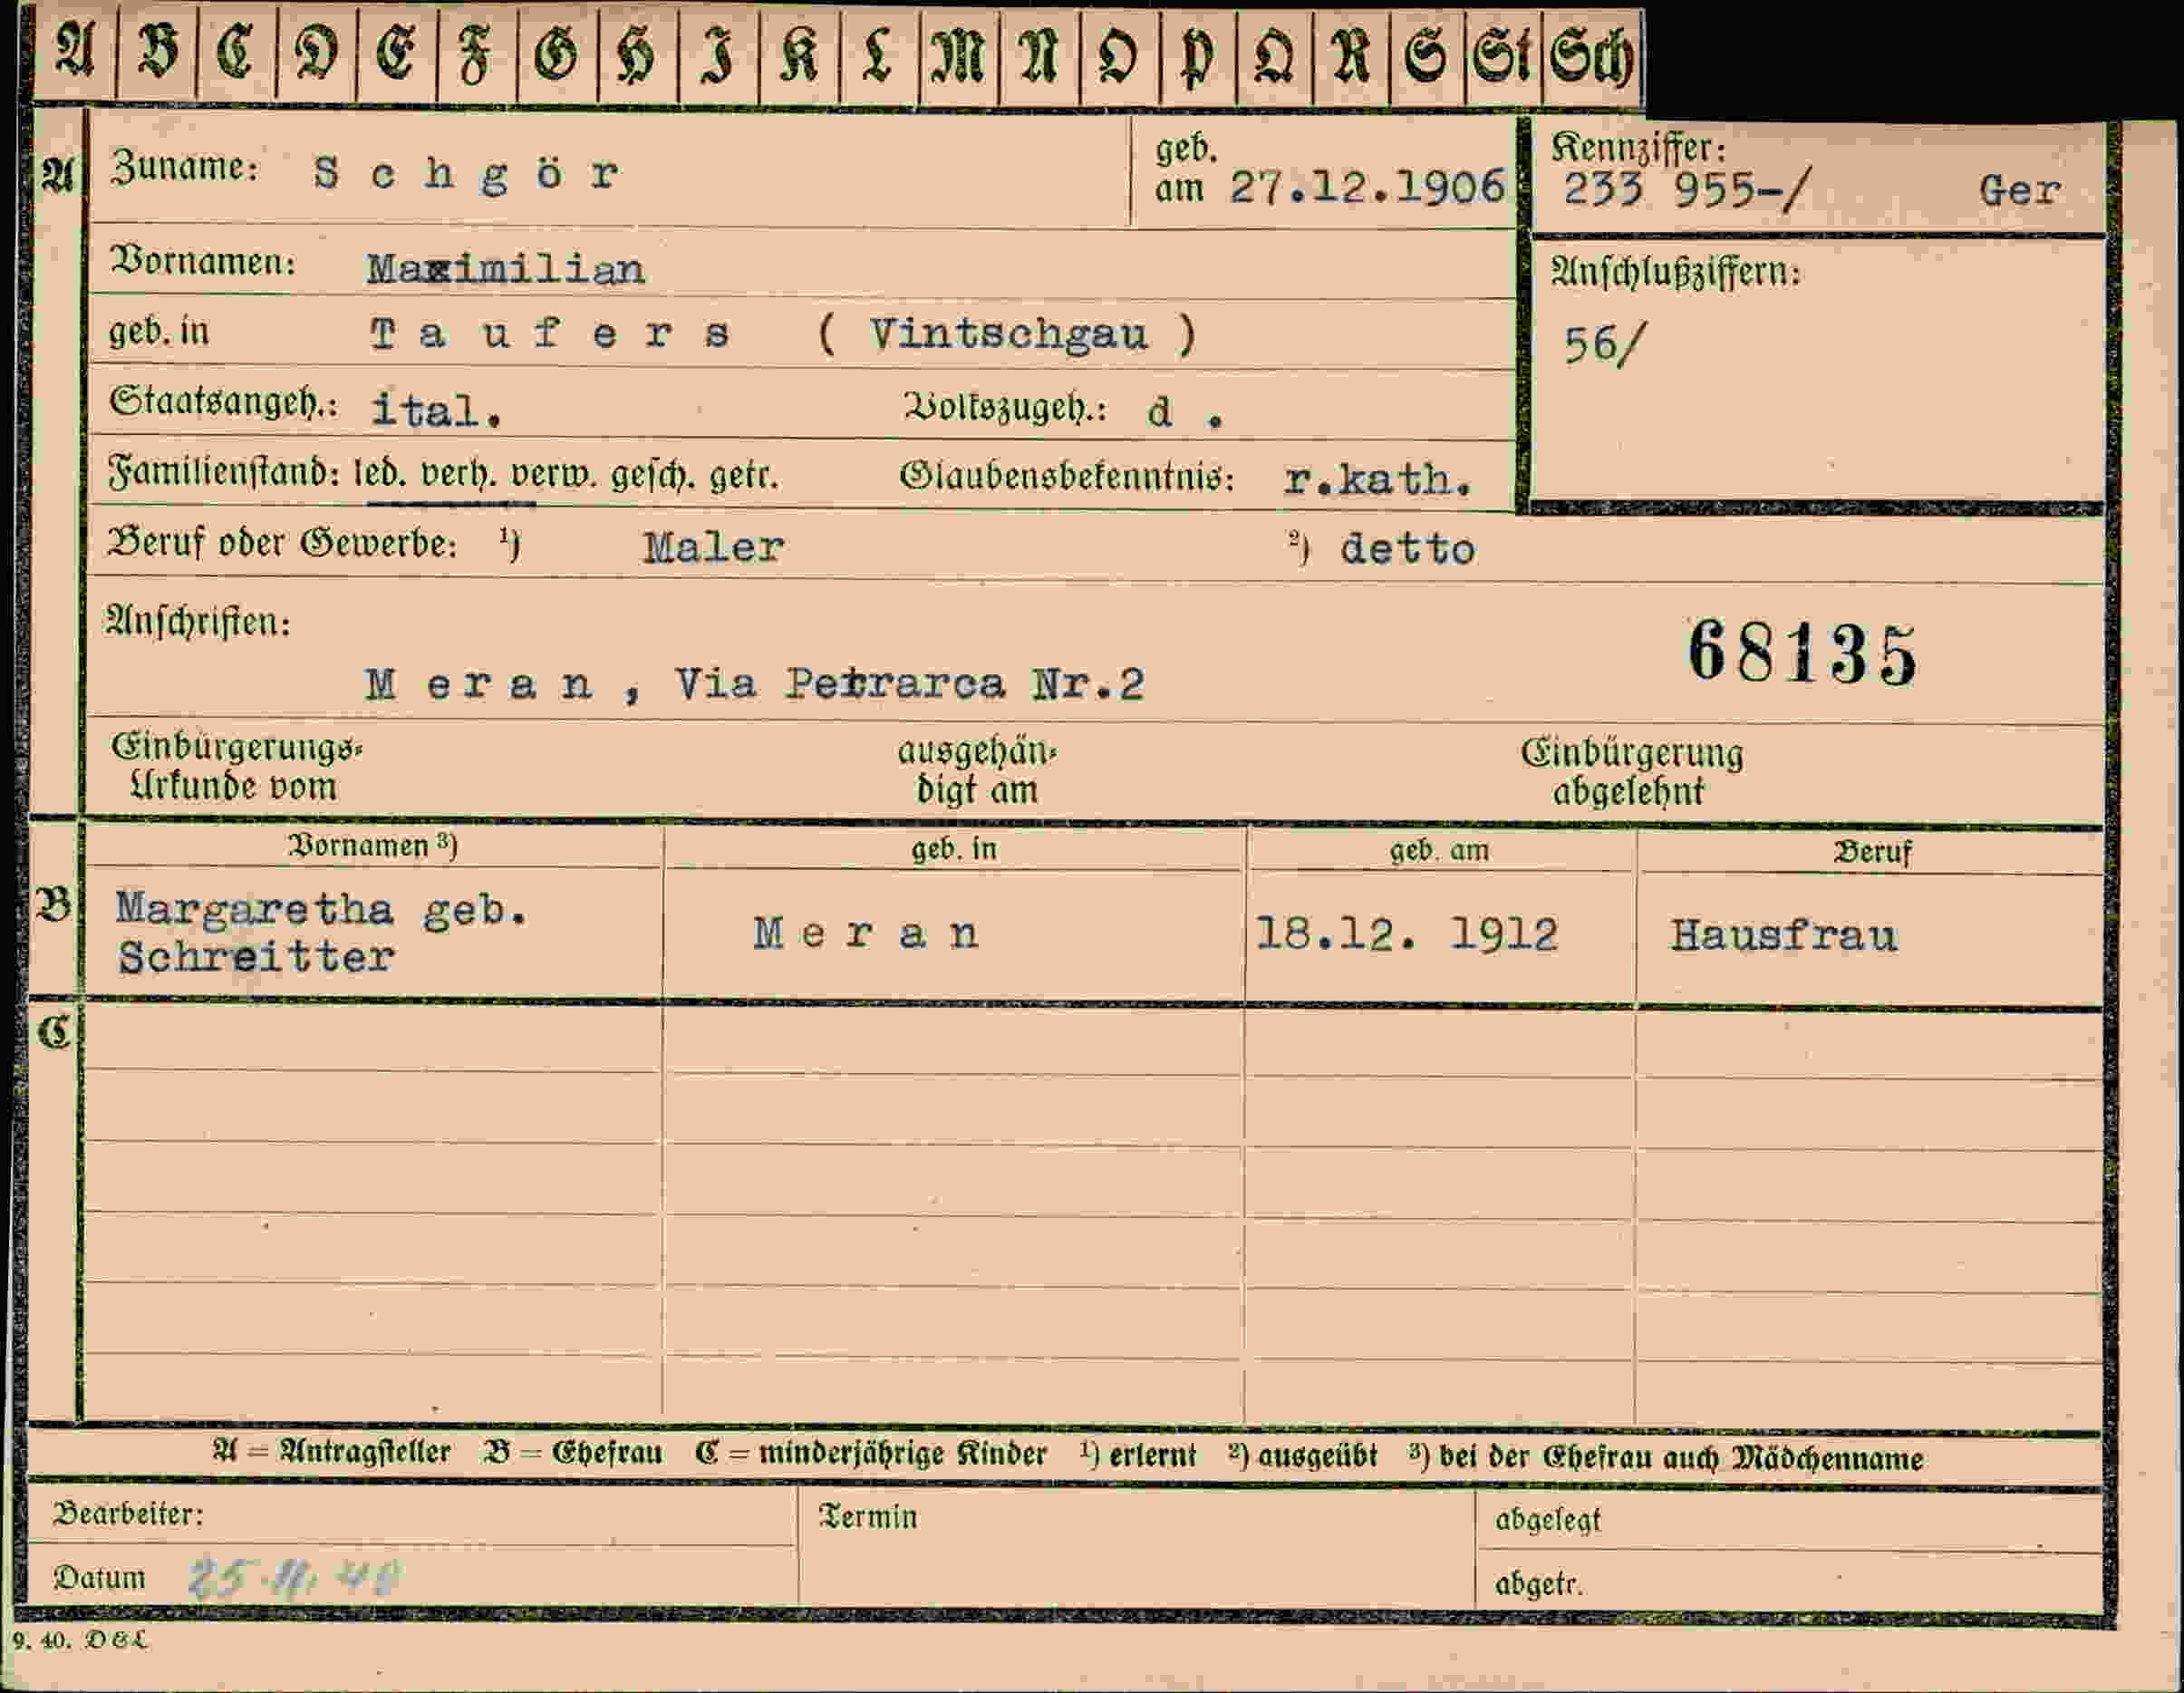 A B C D E F G H I K L M N O P Q R S St Sch
A Zuname: Schgör geb. am 27.12.1906 Kennziffer: 233 955-/ Ger
Vornamen: Maximilian Anschlußziffern:
geb. in Taufers ( Vintschgau ) 56/
Staatsangeh.: ital. Volkszugeh.: d .
Familienstand: led. verh. verw. gesch. getr. Glaubensbekenntnis: r.kath.
Beruf oder Gewerbe: ¹) Maler ²) detto
Anschriften: 68135
Meran, Via Petrarca Nr.2
Einbürgerungs- ausgehän- Einbürgerung
Urkunde vom digt am abgelehnt
Vornamen ³) geb. in geb. am Beruf
B Margaretha geb. Meran 18.12. 1912 Hausfrau
Schreitter
C
A = Antragsteller B = Ehefrau C = minderjährige Kinder ¹) erlernt ²) ausgeübt ³) bei der Ehefrau auch Mädchenname
Bearbeiter: Termin abgelegt
Datum 25.11.40 abgetr.
9. 40. D&L